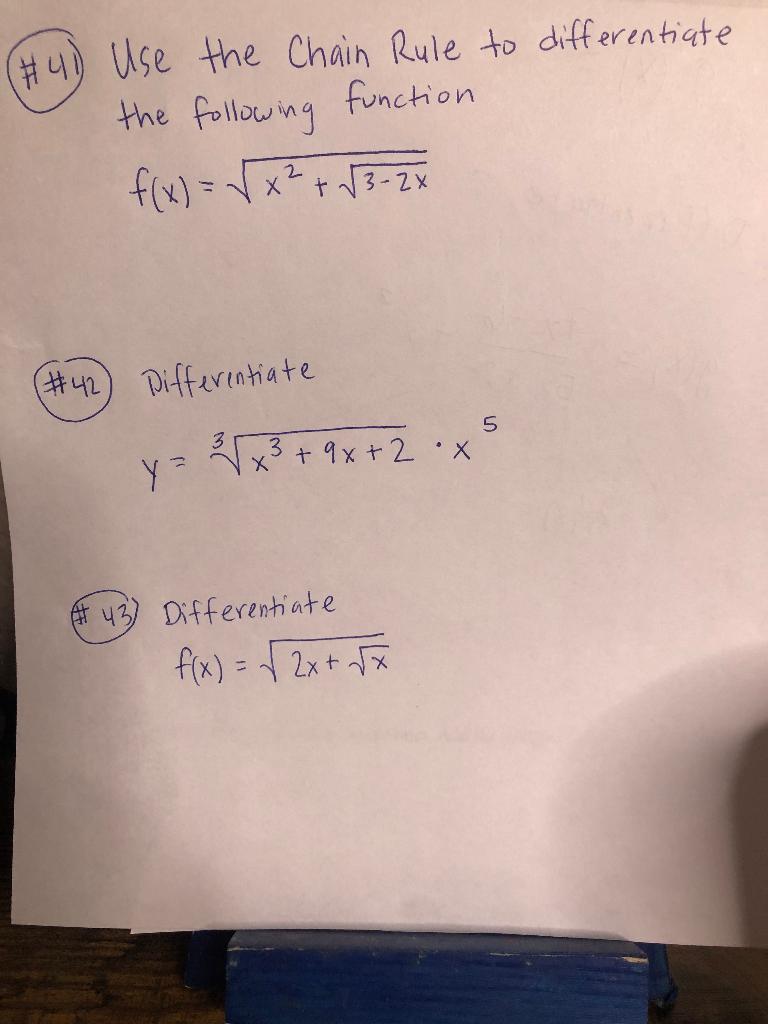 #41 Use the Chain Rule to differentiate
the following function
f(x) = √(x² + √(3-2x))
#42 Differentiate
y = ∛(x³ + 9x + 2) · x⁵
#43 Differentiate
f(x) = √(2x + √x)